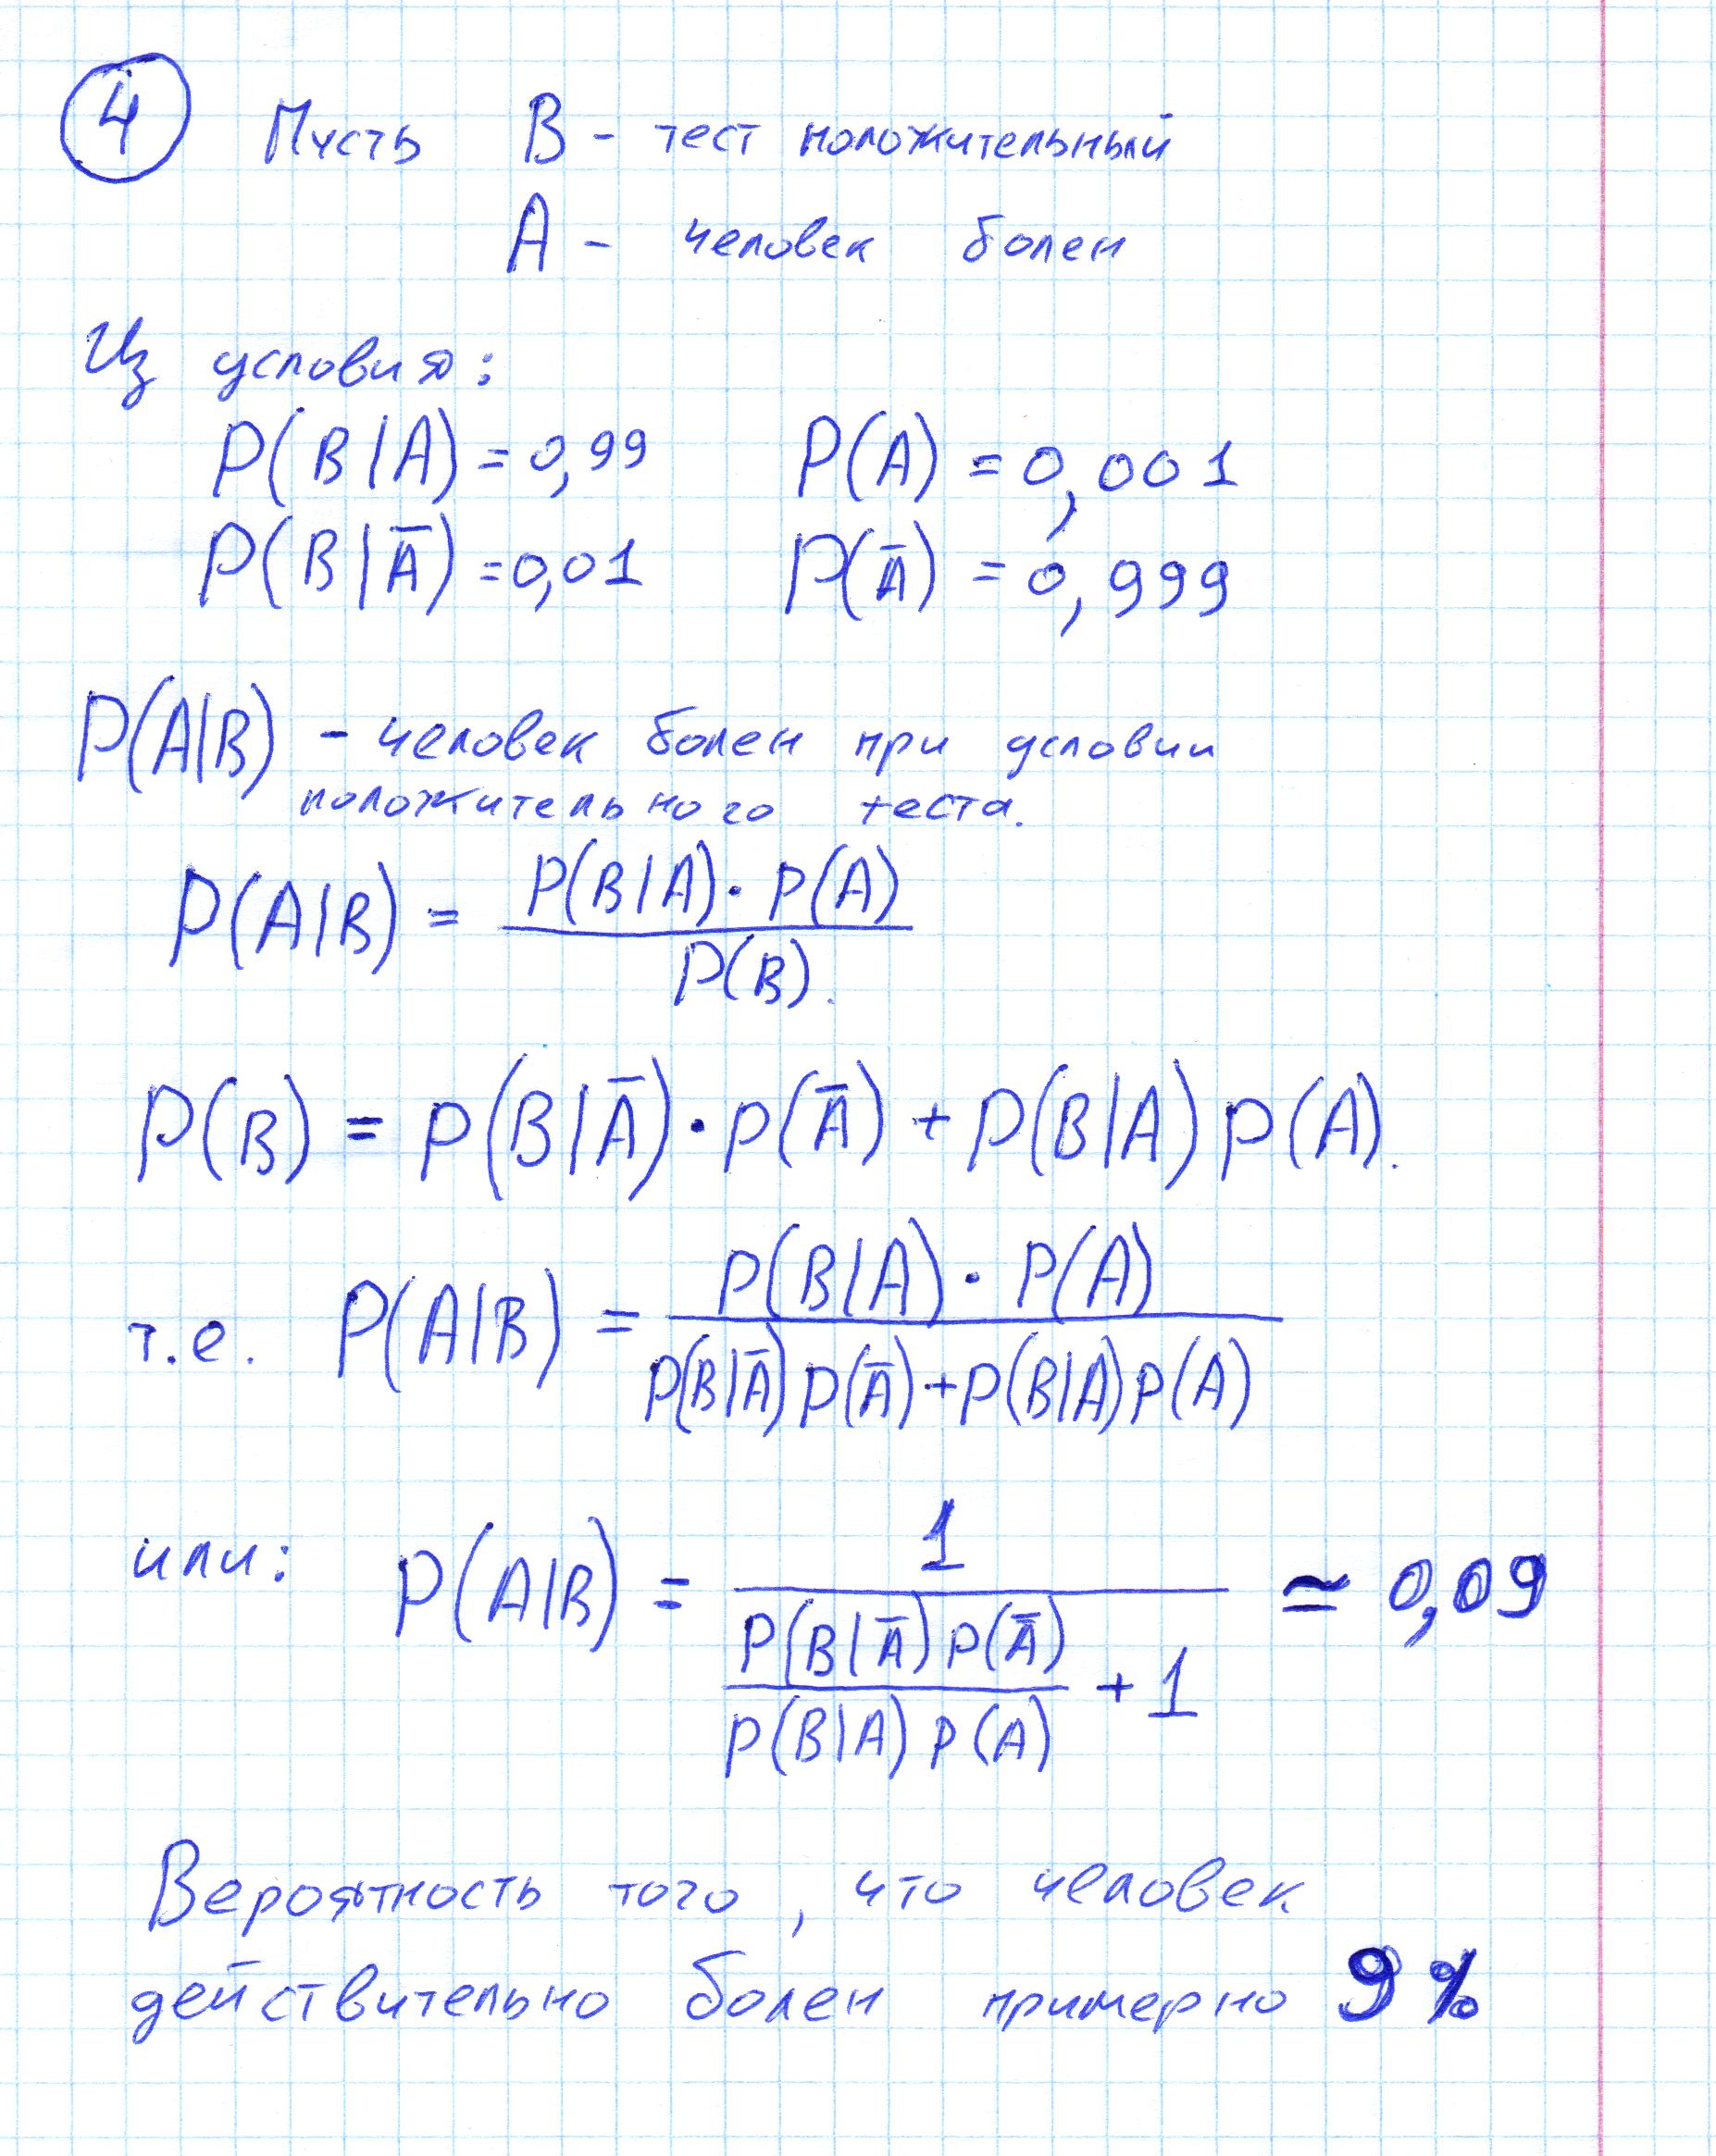 4 Пусть B - тест положительный
A - человек болен
Из условия:
P(B|A) = 0,99 P(A) = 0,001
P(B|Ā) = 0,01 P(Ā) = 0,999
P(A|B) - человек болен при условии
положительного теста.
P(A|B) = P(B|A) · P(A) / P(B).
P(B) = P(B|Ā) · P(Ā) + P(B|A) P(A).
т.е. P(A|B) = P(B|A) · P(A) / P(B|Ā) P(Ā) + P(B|A) P(A)
или: P(A|B) = 1 / P(B|Ā) P(Ā) / P(B|A) P(A) + 1 ≃ 0,09
Вероятность того, что человек
действительно болен примерно 9%